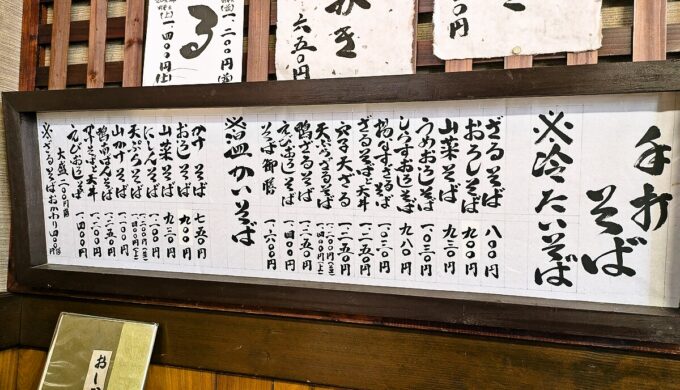 手打
そば
※冷たいそば
ざるそば 八〇〇円
おろしそば 九〇〇円
山菜そば 九三〇円
うめおろしそば 一〇三〇円
しらすおろしそば 九八〇円
揚なすざるそば 一〇三〇円
ざるそばと天丼 一二五〇円
穴子天ざる 一二五〇円
天ぷらざるそば 一二〇〇円(並) 一四〇〇円(上)
鴨ざるそば 一二五〇円
えびおろしそば 一四〇〇円
そば御膳 一六〇〇円
※温かいそば
かけそば 七五〇円
おろしそば 九〇〇円
山菜そば 九三〇円
にしんそば 一一〇〇円
天ぷらそば
山かけそば 一一〇〇円
鴨南ばんそば 一二五〇円
かけそばと天丼 一二〇〇円
えびおろしそば 一四〇〇円
大盛 二〇〇円増
※ざるそばおかわり
る
一二〇〇円(並)
一四〇〇円(上)
六五〇円